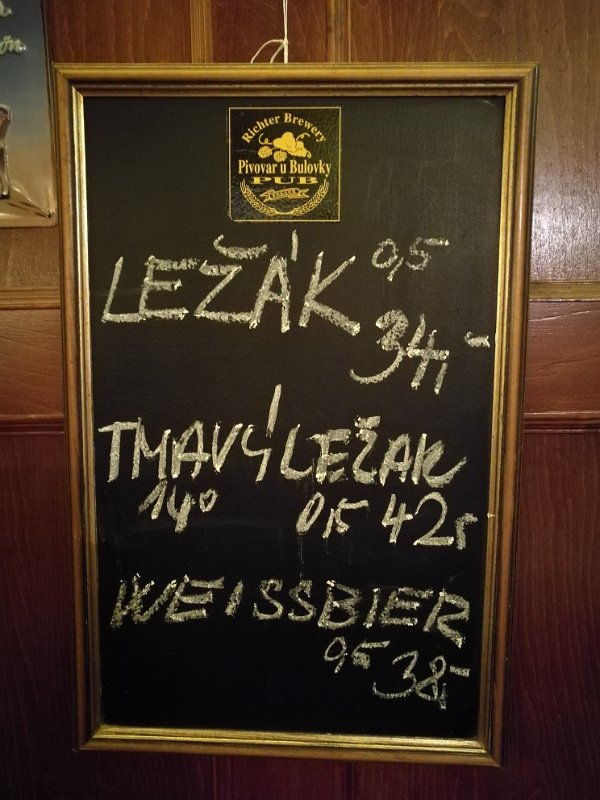 Richter Brewery
Pivovar u Bulovky
PUB
LEŽÁK 0,5
34,-
TMAVÝ LEŽAK
14° 0,5 42,-
WEISSBIER
0,5 38,-